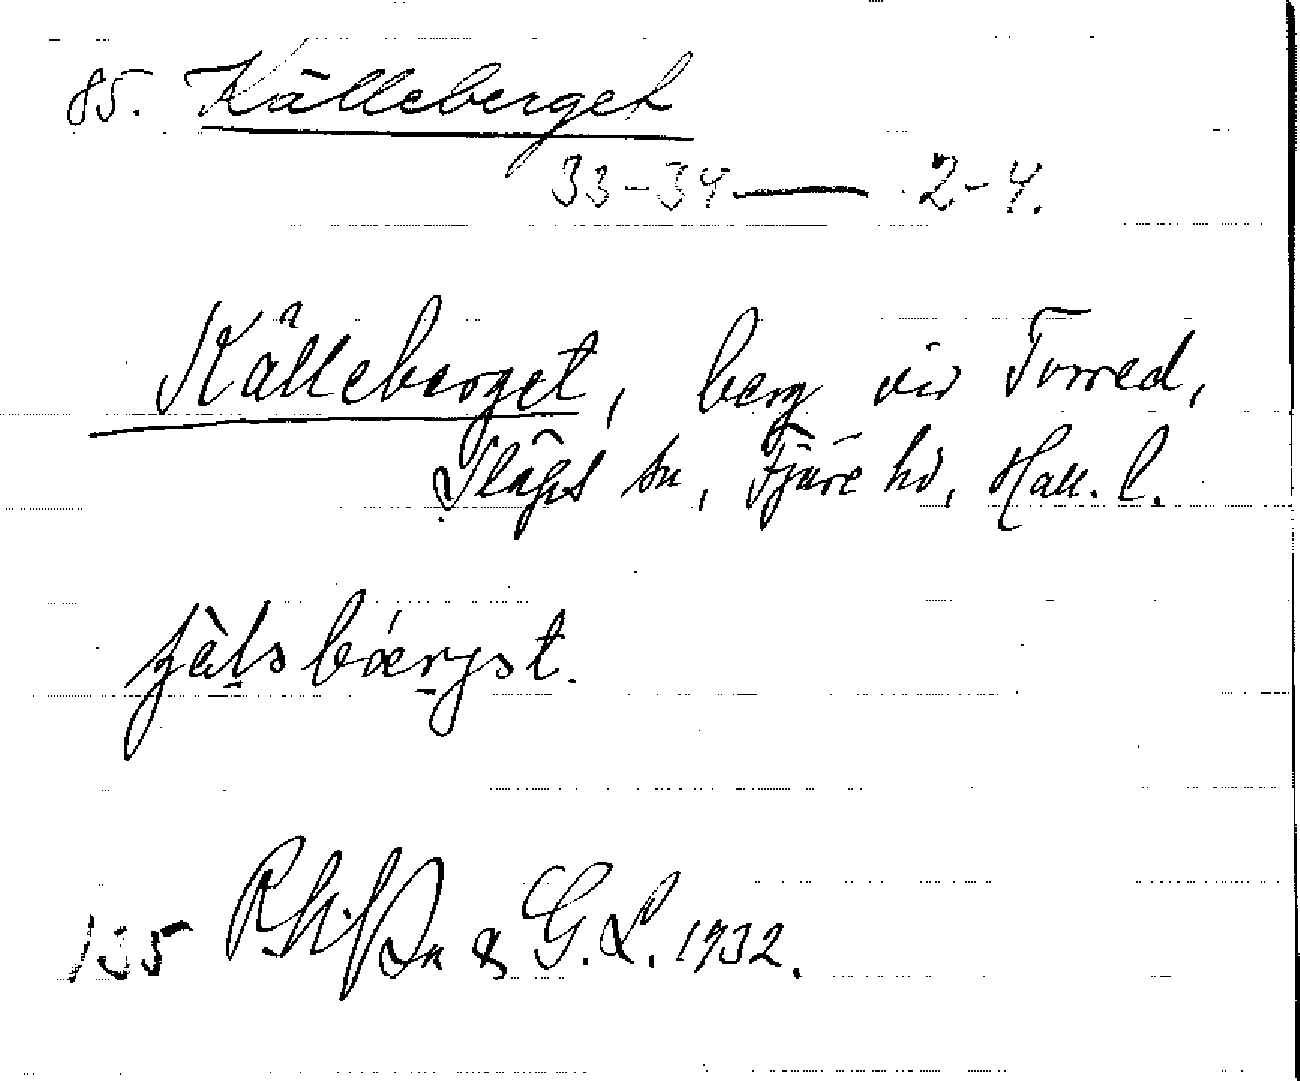 85. Källeberget
33-34 — 2-4.
Källeberget, berg vid Torred,
Släps sn, Fjäre hd, Hall. l.
135 & G. L. 1932.